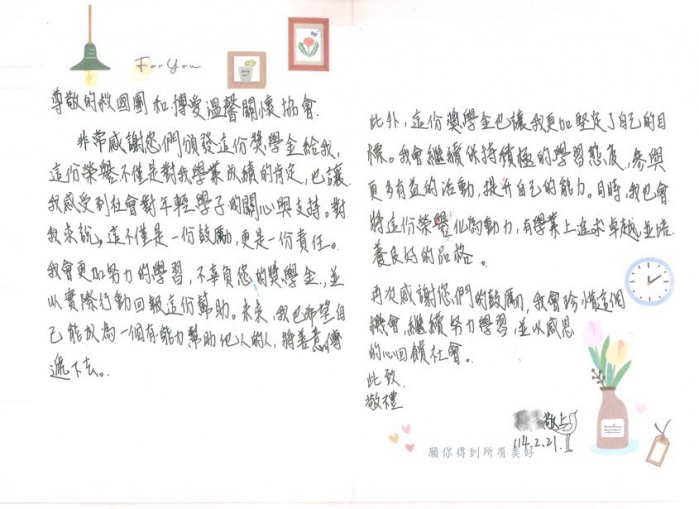 For You
尊敬的救國團和博愛溫馨關懷協會.
非常感謝您們頒發這份獎學金給我,
這份榮譽不僅是對我學業成績的肯定,也讓
我感受到社會對年輕學子的關心與支持。對
我來說,這不僅是一份鼓勵,更是一份責任。
我會更加努力的學習,不辜負您的獎學金,並
以實際行動回報這份幫助。未來,我也希望自
己能成為一個有能力幫助他人的人,將善意傳
遞下去。
此外,這份獎學金也讓我更加堅定了自己的目
標。我會繼續保持積極的學習態度,參與
更多有益的活動,提升自己的能力。同時,我也會
將這份榮譽化為動力,在學業上追求卓越,並培
養良好的品格。
再次感謝您們的鼓勵,我會珍惜這個
機會,繼續努力學習,並以感恩
的心回饋社會。
此致
敬禮
敬上
114.2.21.
願你得到所有美好